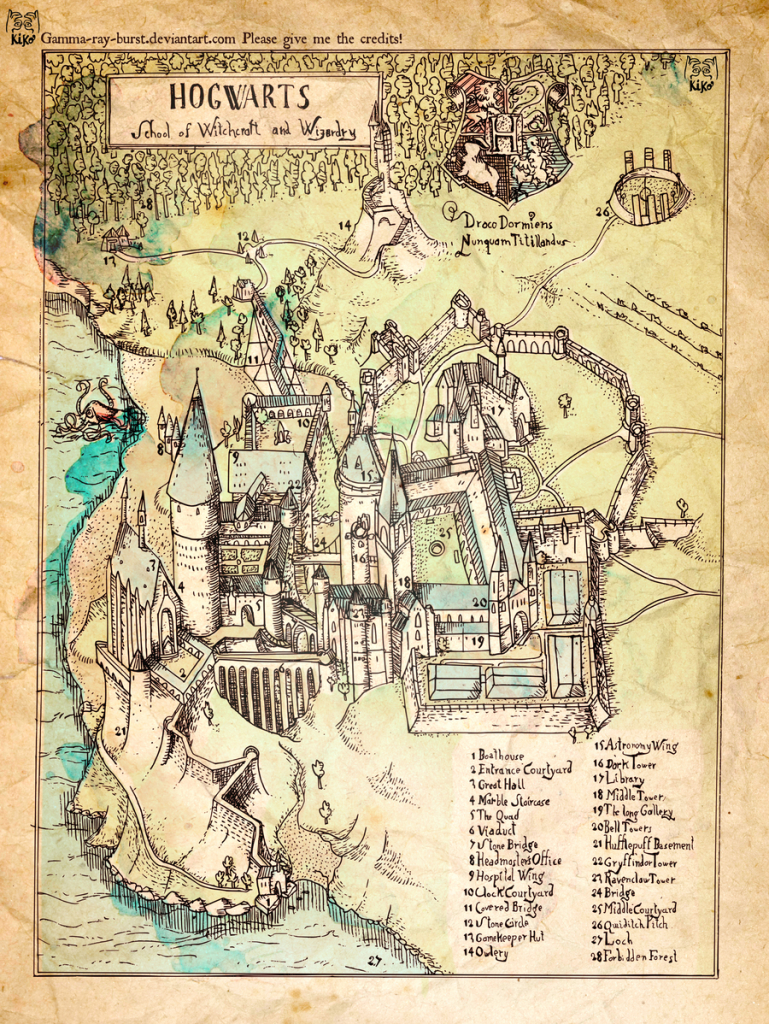 KiKo Gamma-ray-burst.deviantart.com Please give me the credits!
KiKo
HOGWARTS
School of Witchcraft and Wizardry
Draco Dormiens
Nunquam Titillandus
28
14
12
13
26
11
10
17
8
9
22
15
25
3
4
16
18
5
20
19
2
21
27
1 Boathouse
2 Entrance Courtyard
3 Great Hall
4 Marble Staircase
5 The Quad
6 Viaduct
7 Stone Bridge
8 Headmasters Office
9 Hospital Wing
10 Clock Courtyard
11 Covered Bridge
12 Stone Circle
13 Gamekeeper Hut
14 Owlery
15 Astronomy Wing
16 Dark Tower
17 Library
18 Middle Tower
19 The long Gallery
20 Bell Towers
21 Hufflepuff Basement
22 Gryffindor Tower
23 Ravenclaw Tower
24 Bridge
25 Middle Courtyard
26 Quiditch Pitch
27 Loch
28 Forbidden Forest